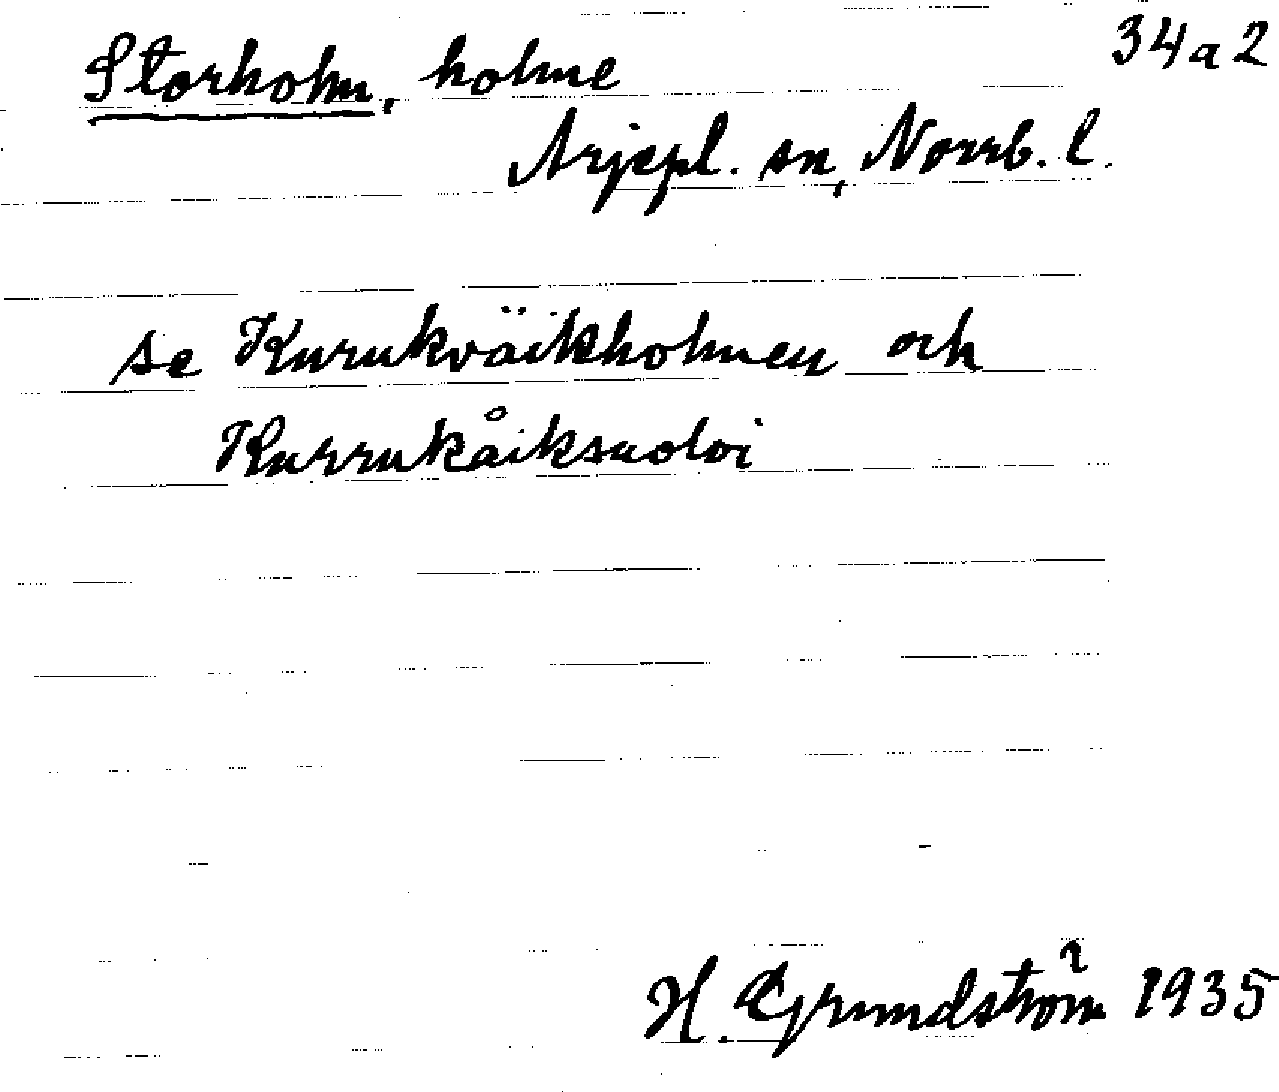 34a2
Storholm, holme
Arjepl. sn, Norrb. l.
se Kurukväikholmen och
Kurrukåiksuoloi
H. Grundström 1935